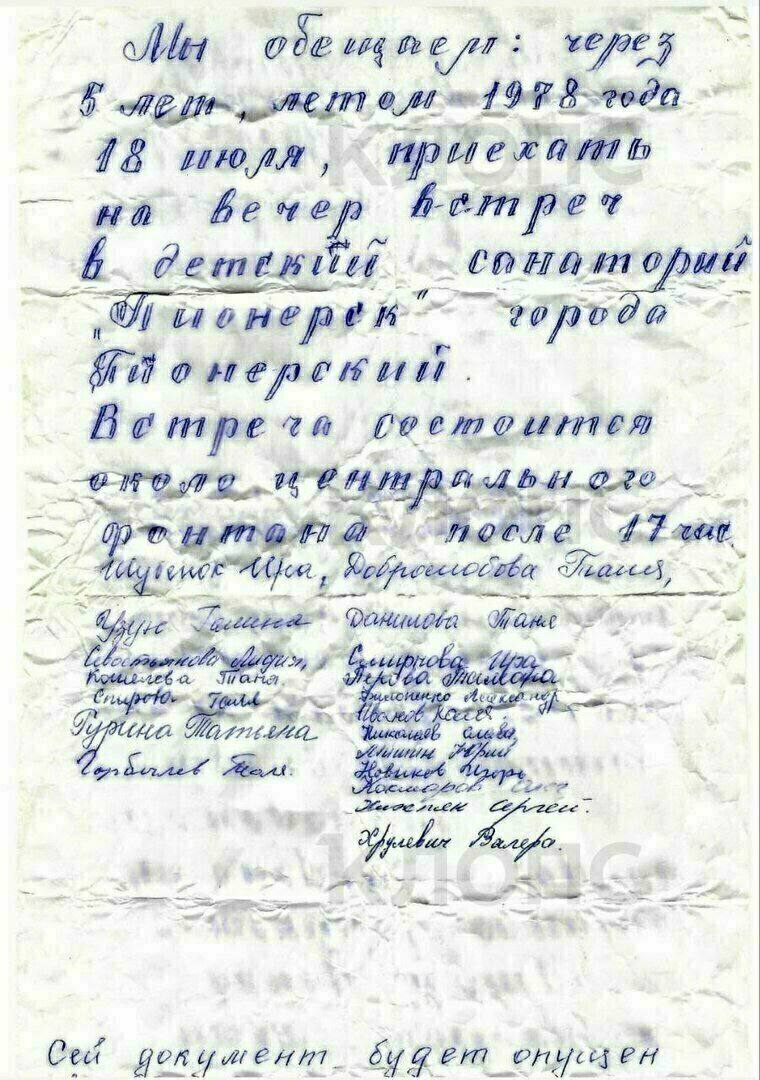 Мы обещаем: через
5 лет, летом 1978 года
18 июля, приехать
на вечер встреч
в детский санаторий
„Пионерск" города
Пионерский.
Встреча состоится
около центрального
фонтана после 17 час.
Ира, Добромобова Таня,
Узун Галина Данилова Таня
Севостьянова Лидия, Смирнова Ира
Кошелева Таня. Перова Тамара
Спирова Галя Филопенко Александр
Иванов Коля.
Гурина Татьяна Николаев Слава
Мишин Юрий
Горбычев Толя. Новиков Игорь
Сергей.
Хрулевич Валера.
Сей документ будет опущен
КЛОПС
КЛОПС
КЛОПС